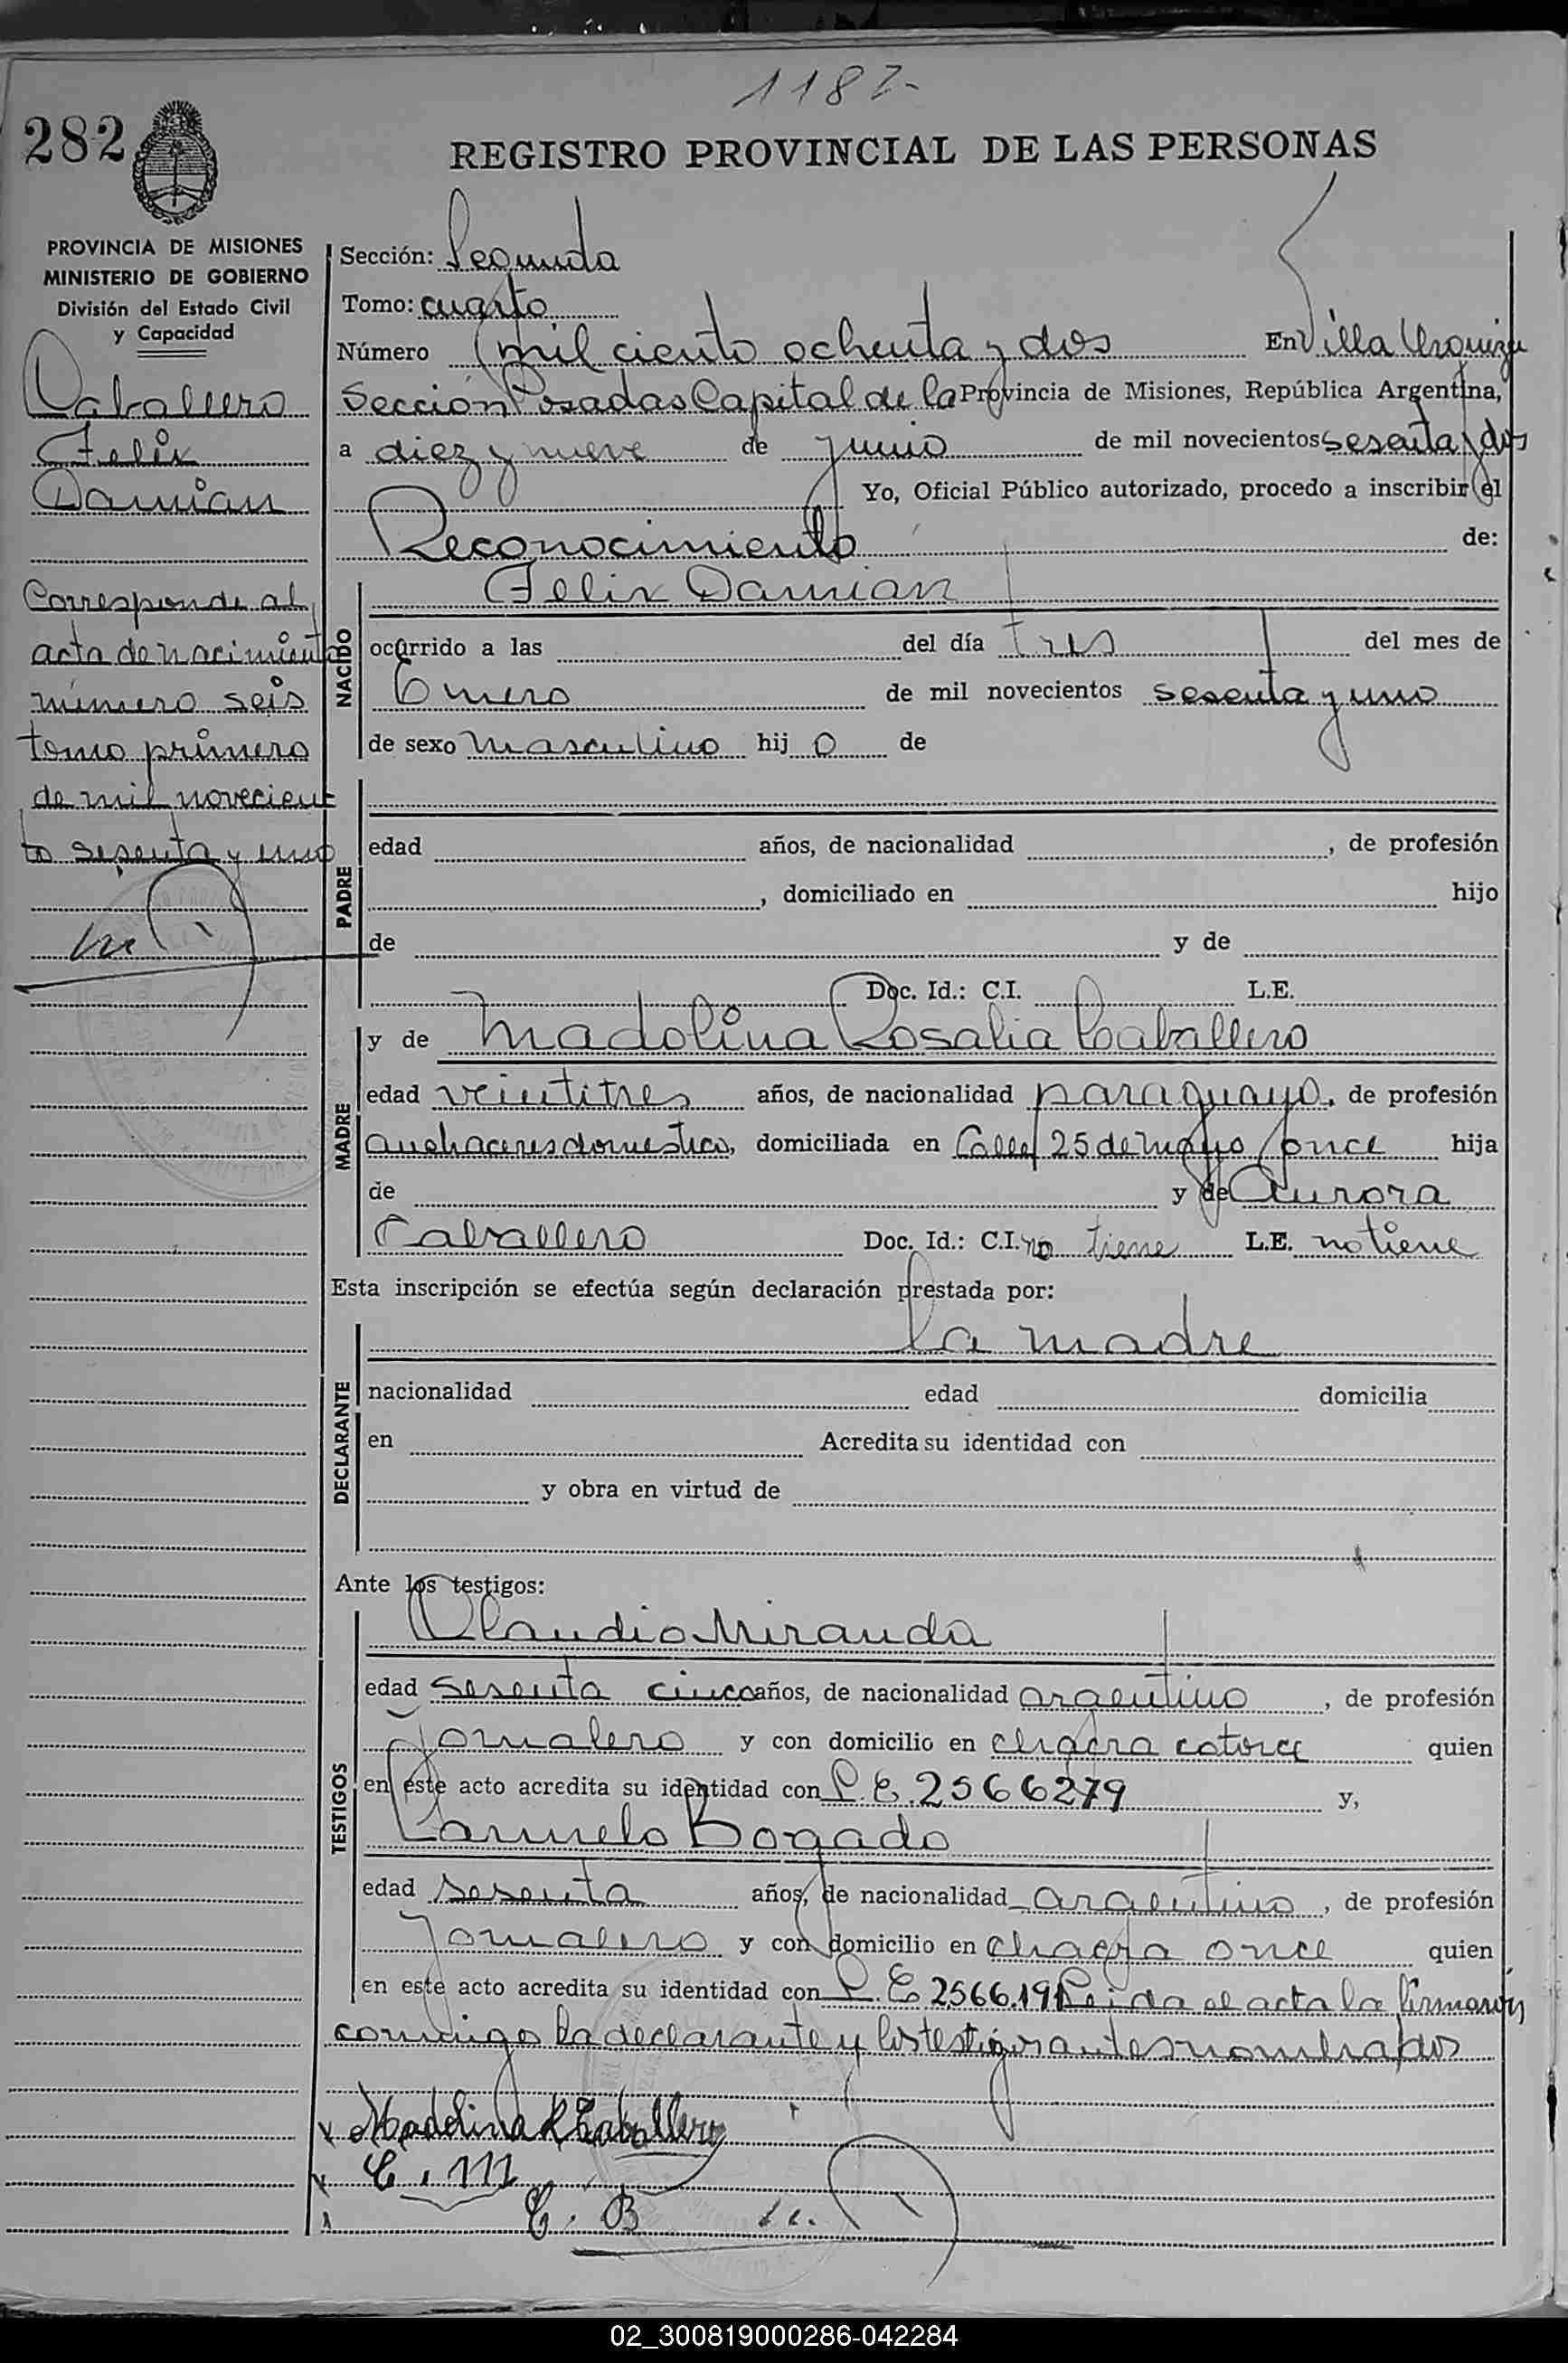 1182-
282
REGISTRO PROVINCIAL DE LAS PERSONAS
PROVINCIA DE MISIONES
MINISTERIO DE GOBIERNO
División del Estado Civil
y Capacidad
Caballero
Felix
Damian
Corresponde al
acta de nacimiento
número seis
tomo primero
de mil novecient
to sesenta y uno
Sección: Segunda
Tomo: cuarto
Número mil ciento ochenta y dos En Villa Urquiza
Sección Posadas Capital de la Provincia de Misiones, República Argentina,
a diez y nueve de junio de mil novecientos sesenta y dos
Yo, Oficial Público autorizado, procedo a inscribir el
Reconocimiento de:
NACIDO
Felix Damian
ocurrido a las del día tres del mes de
Enero de mil novecientos sesenta y uno
de sexo masculino hijo de
PADRE
edad años, de nacionalidad , de profesión
, domiciliado en hijo
de y de
Doc. Id.: C.I. L.E.
MADRE
y de Madolina Rosalia Caballero
edad veintitres años, de nacionalidad paraguaya, de profesión
quehaceres domestico, domiciliada en Calle 25 de Mayo once hija
de y de Aurora
Caballero Doc. Id.: C.I. no tiene L.E. no tiene
Esta inscripción se efectúa según declaración prestada por:
DECLARANTE
la madre
nacionalidad edad domicilia
en Acredita su identidad con
y obra en virtud de
Ante los testigos:
TESTIGOS
Claudio Miranda
edad sesenta cinco años, de nacionalidad argentino, de profesión
Jornalero y con domicilio en chacra catorce quien
en este acto acredita su identidad con L.E. 2566279 y,
Carmelo Bogado
edad sesenta años, de nacionalidad argentino, de profesión
Jornalero y con domicilio en chacra once quien
en este acto acredita su identidad con L.E 2566.19 Leida el acta la firmaron
conmigo la declarante y los testigos antes nombrados
x Madolina R Caballero
x C. M
C. B
02_300819000286-042284